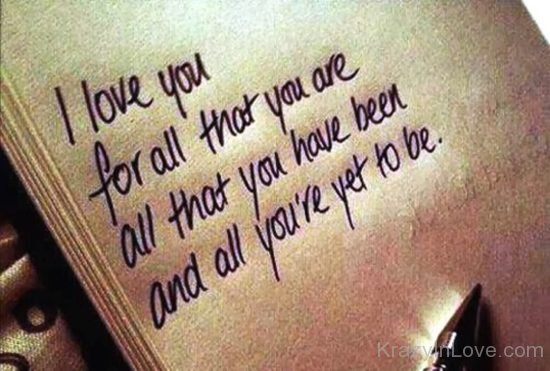 I love you
for all that you are
all that you have been
and all you're yet to be.
KrazyInLove.com